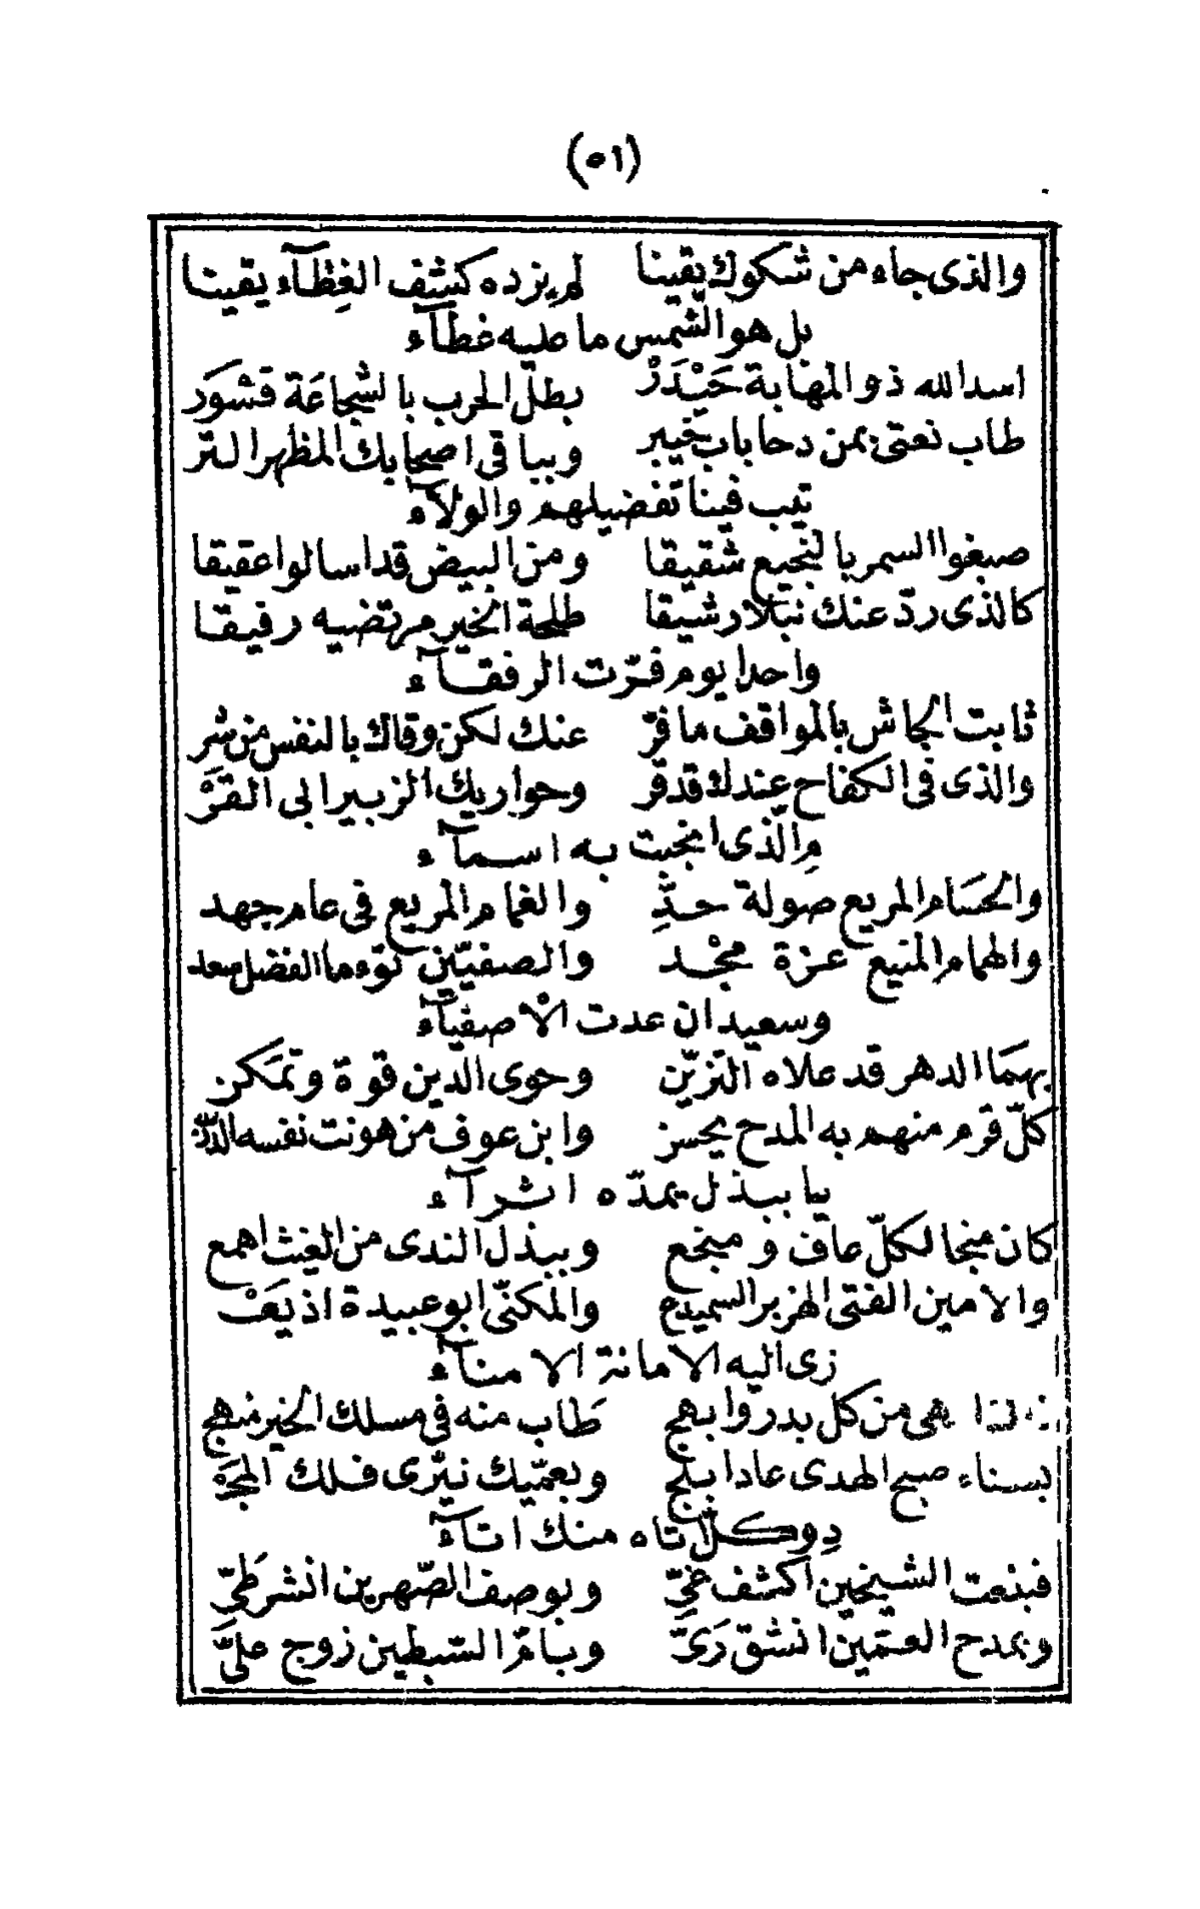 (٥١)
والذى جاء من شكوك يقينا لم يزده كشف الغِطآء يقينا
بل هو الشّمس ما عليه غطآء
اسد الله ذو المهابة حَيْدَرْ بطلّ الحرب بالشجاعَة قشوَر
طاب نعتى بمن دحا باب خيبر وبباقى اصحابك المظهر التر
تيب فينا تفضيلهم والولآء
صبغوا السمر بالنجيع شقيقا ومن البيض قد اسالوا عقيقا
كالذى ردّ عنك نبلا رشيقا طلحة الخير مرتضيه رفيقا
واحدا يوم فرّت الرفقآء
ثابت الجاش بالمواقف ما فرّ عنك لكن وقاك بالنفس من شر
والذى فى الكفاح عندك قد قر وحواريك الزبير ابى القَرْ
مِ الّذى انجبت به اسمآء
والحسَام المريع صولة حدِّ والغمام المريع فى عام جهد
والهمام المنيع عزة مجْد والصفيّين توءما الفضل سعد
وسعيد ان عدت الأصفيآء
بهمَا الدهر قد علاه التزيّن وحوى الدين قوة وتمَكن
كلّ قرم منهم به المدح يحسن وابن عوف من هونت نفسه الدنـ
يا ببذل يمدّه اثرآء
كان منجا لكلّ عاف ومنجع وببذل الندى من الغيث اهمع
والامين الفتى الهزبر السميدع والمكنّى ابو عبيدة اذ يَعْـ
زى اليه الامانة الامنآء
هى من كل بدر وابهج طَاب منه فى مسلك الخير منهج
بسناء صبح الهدى عاد ابلج وبعمّيك نيّرى فلك المجَـ
دِ وكلّ تاه منك اتآء
فبنعت الشيخين اكشف غىّ وبوصف الصّهرين انشر طَىّ
وبمدح العمّين انشق رَىَّ وبامّ السّبطين زوج علىَّ